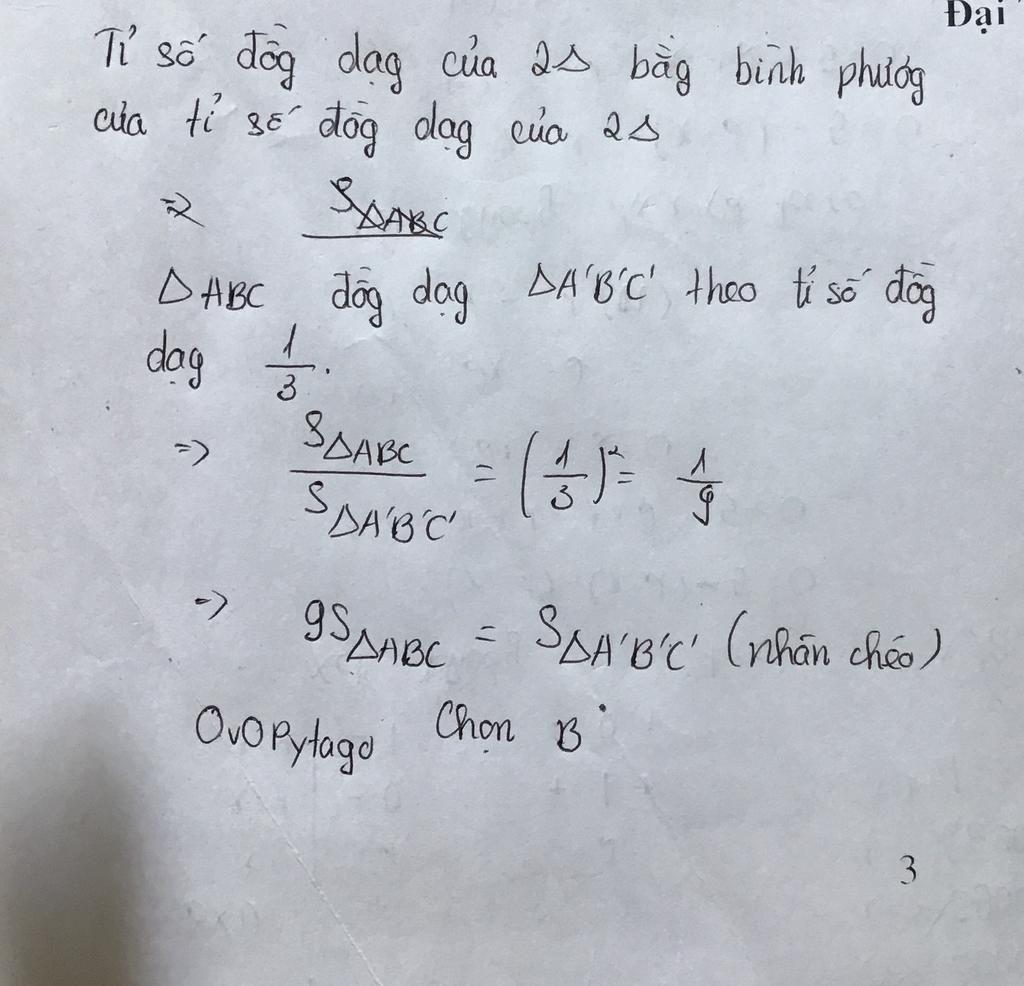 Đại
Tỉ số đồg dạg của 2Δ bằg bình phươg
của tỉ số đồg dạg của 2Δ
=>
S ΔABC
ΔABC đồg dạg ΔA'B'C' theo tỉ số đồg
dạg 1/3.
=> SΔABC/SΔA'B'C' = (1/3)² = 1/9
=> 9SΔABC = SΔA'B'C' (nhân chéo)
OvOPytago Chọn B
3